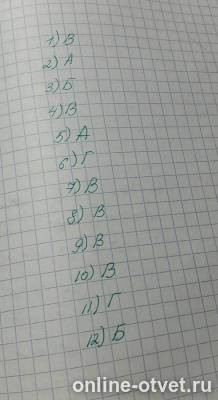 1) В
2) А
3) Б
4) В
5) А
6) Г
7) В
8) В
9) В
10) В
11) Г
12) Б
online-otvet.ru